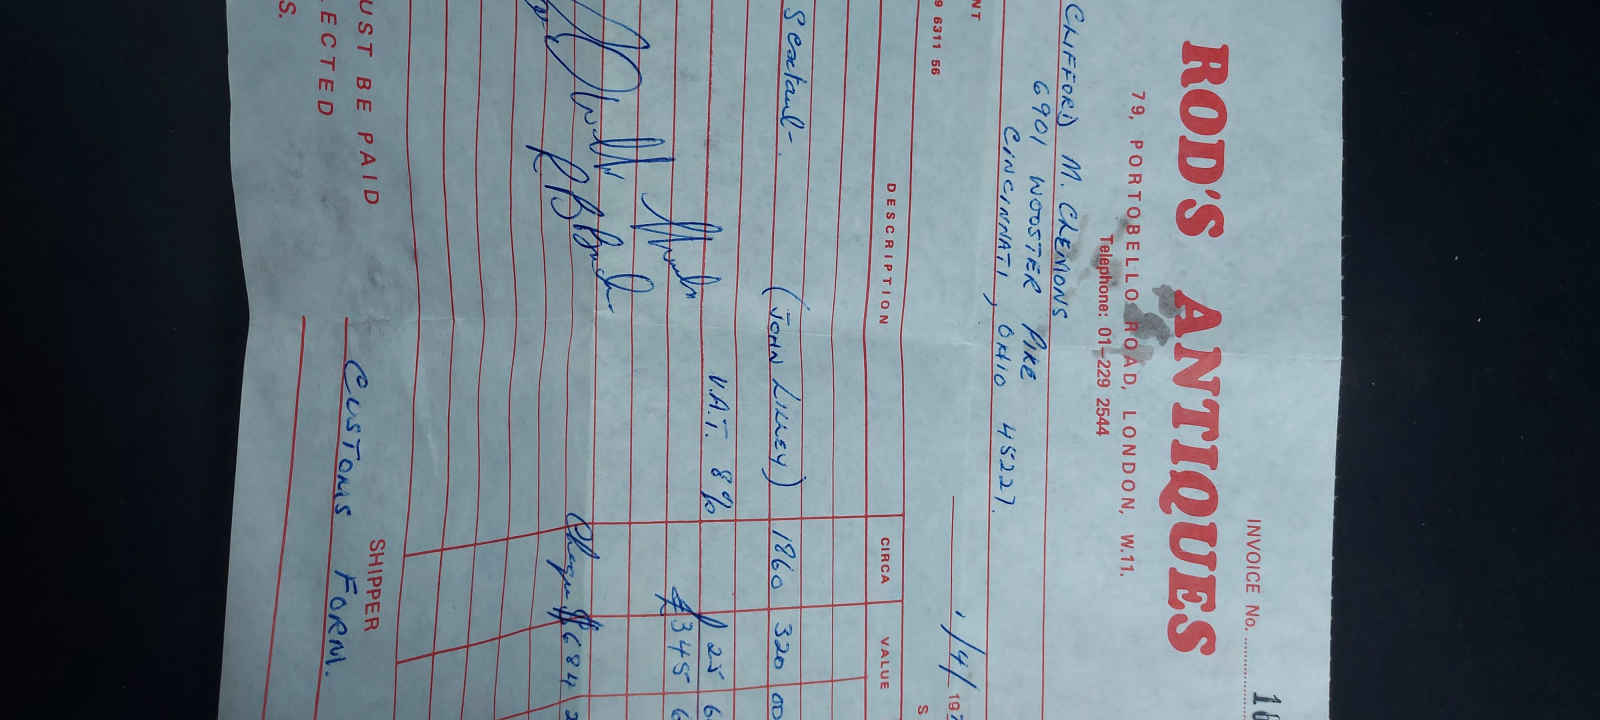 INVOICE No. 18
ROD'S ANTIQUES
79, PORTOBELLO ROAD, LONDON, W.11.
Telephone: 01-229 2544
CLIFFORD M. CLEMONS
6901 WOOSTER PIKE
CINCINNATI, OHIO 45227.
NT
/4/ 197
9 6311 56
S
DESCRIPTION CIRCA VALUE
Sextant
(JOHN LILLEY) 1860 320 00
V.A.T. 8% 25 6
£345 6
Cheque $684 2
UST BE PAID SHIPPER
ECTED CUSTOMS FORM.
S.